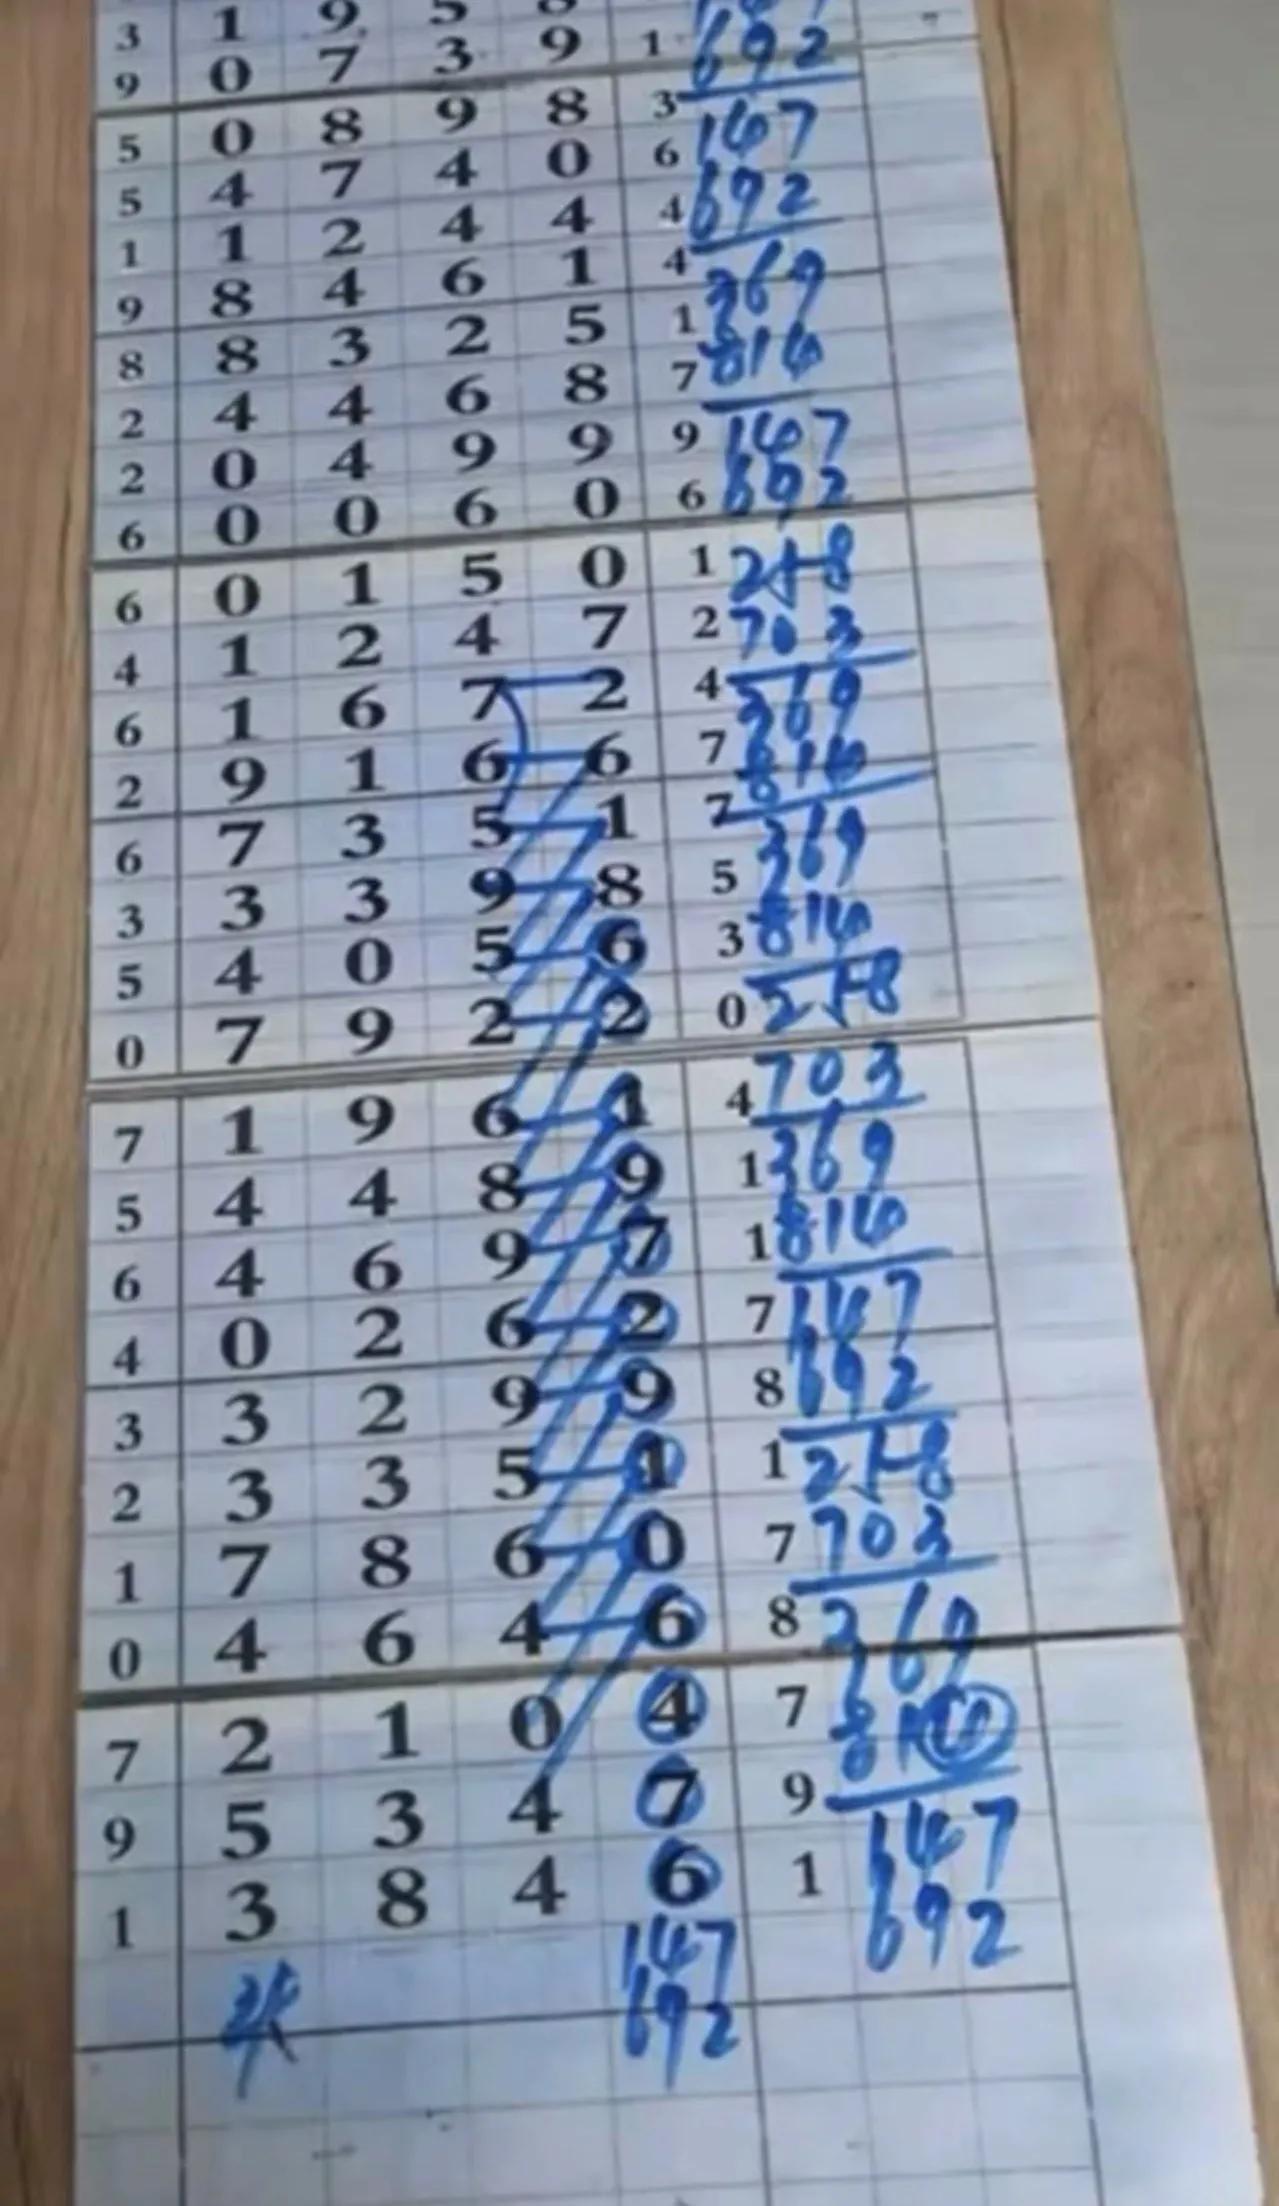 3 1 9 5
9 0 7 3 9 1 692
5 0 8 9 8 3 147
5 4 7 4 0 6 692
1 1 2 4 4 4
9 8 4 6 1 4 369
8 8 3 2 5 1 814
2 4 4 6 8 7
2 0 4 9 9 9 147
6 0 0 6 0 6 692
6 0 1 5 0 1 258
4 1 2 4 7 2 703
6 1 6 7 2 4 369
2 9 1 6 6 7 814
6 7 3 5 1 7 369
3 3 3 9 8 5
5 4 0 5 6 3 814
0 7 9 2 2 0 258
7 1 9 6 1 4 703
5 4 4 8 9 1 369
6 4 6 9 7 1 814
4 0 2 6 2 7 147
3 3 2 9 9 8 692
2 3 3 5 1 1 258
1 7 8 6 0 7 703
0 4 6 4 6 8 369
7 2 1 0 4 7 814
9 5 3 4 7 9 147
1 3 8 4 6 1 692
147
692